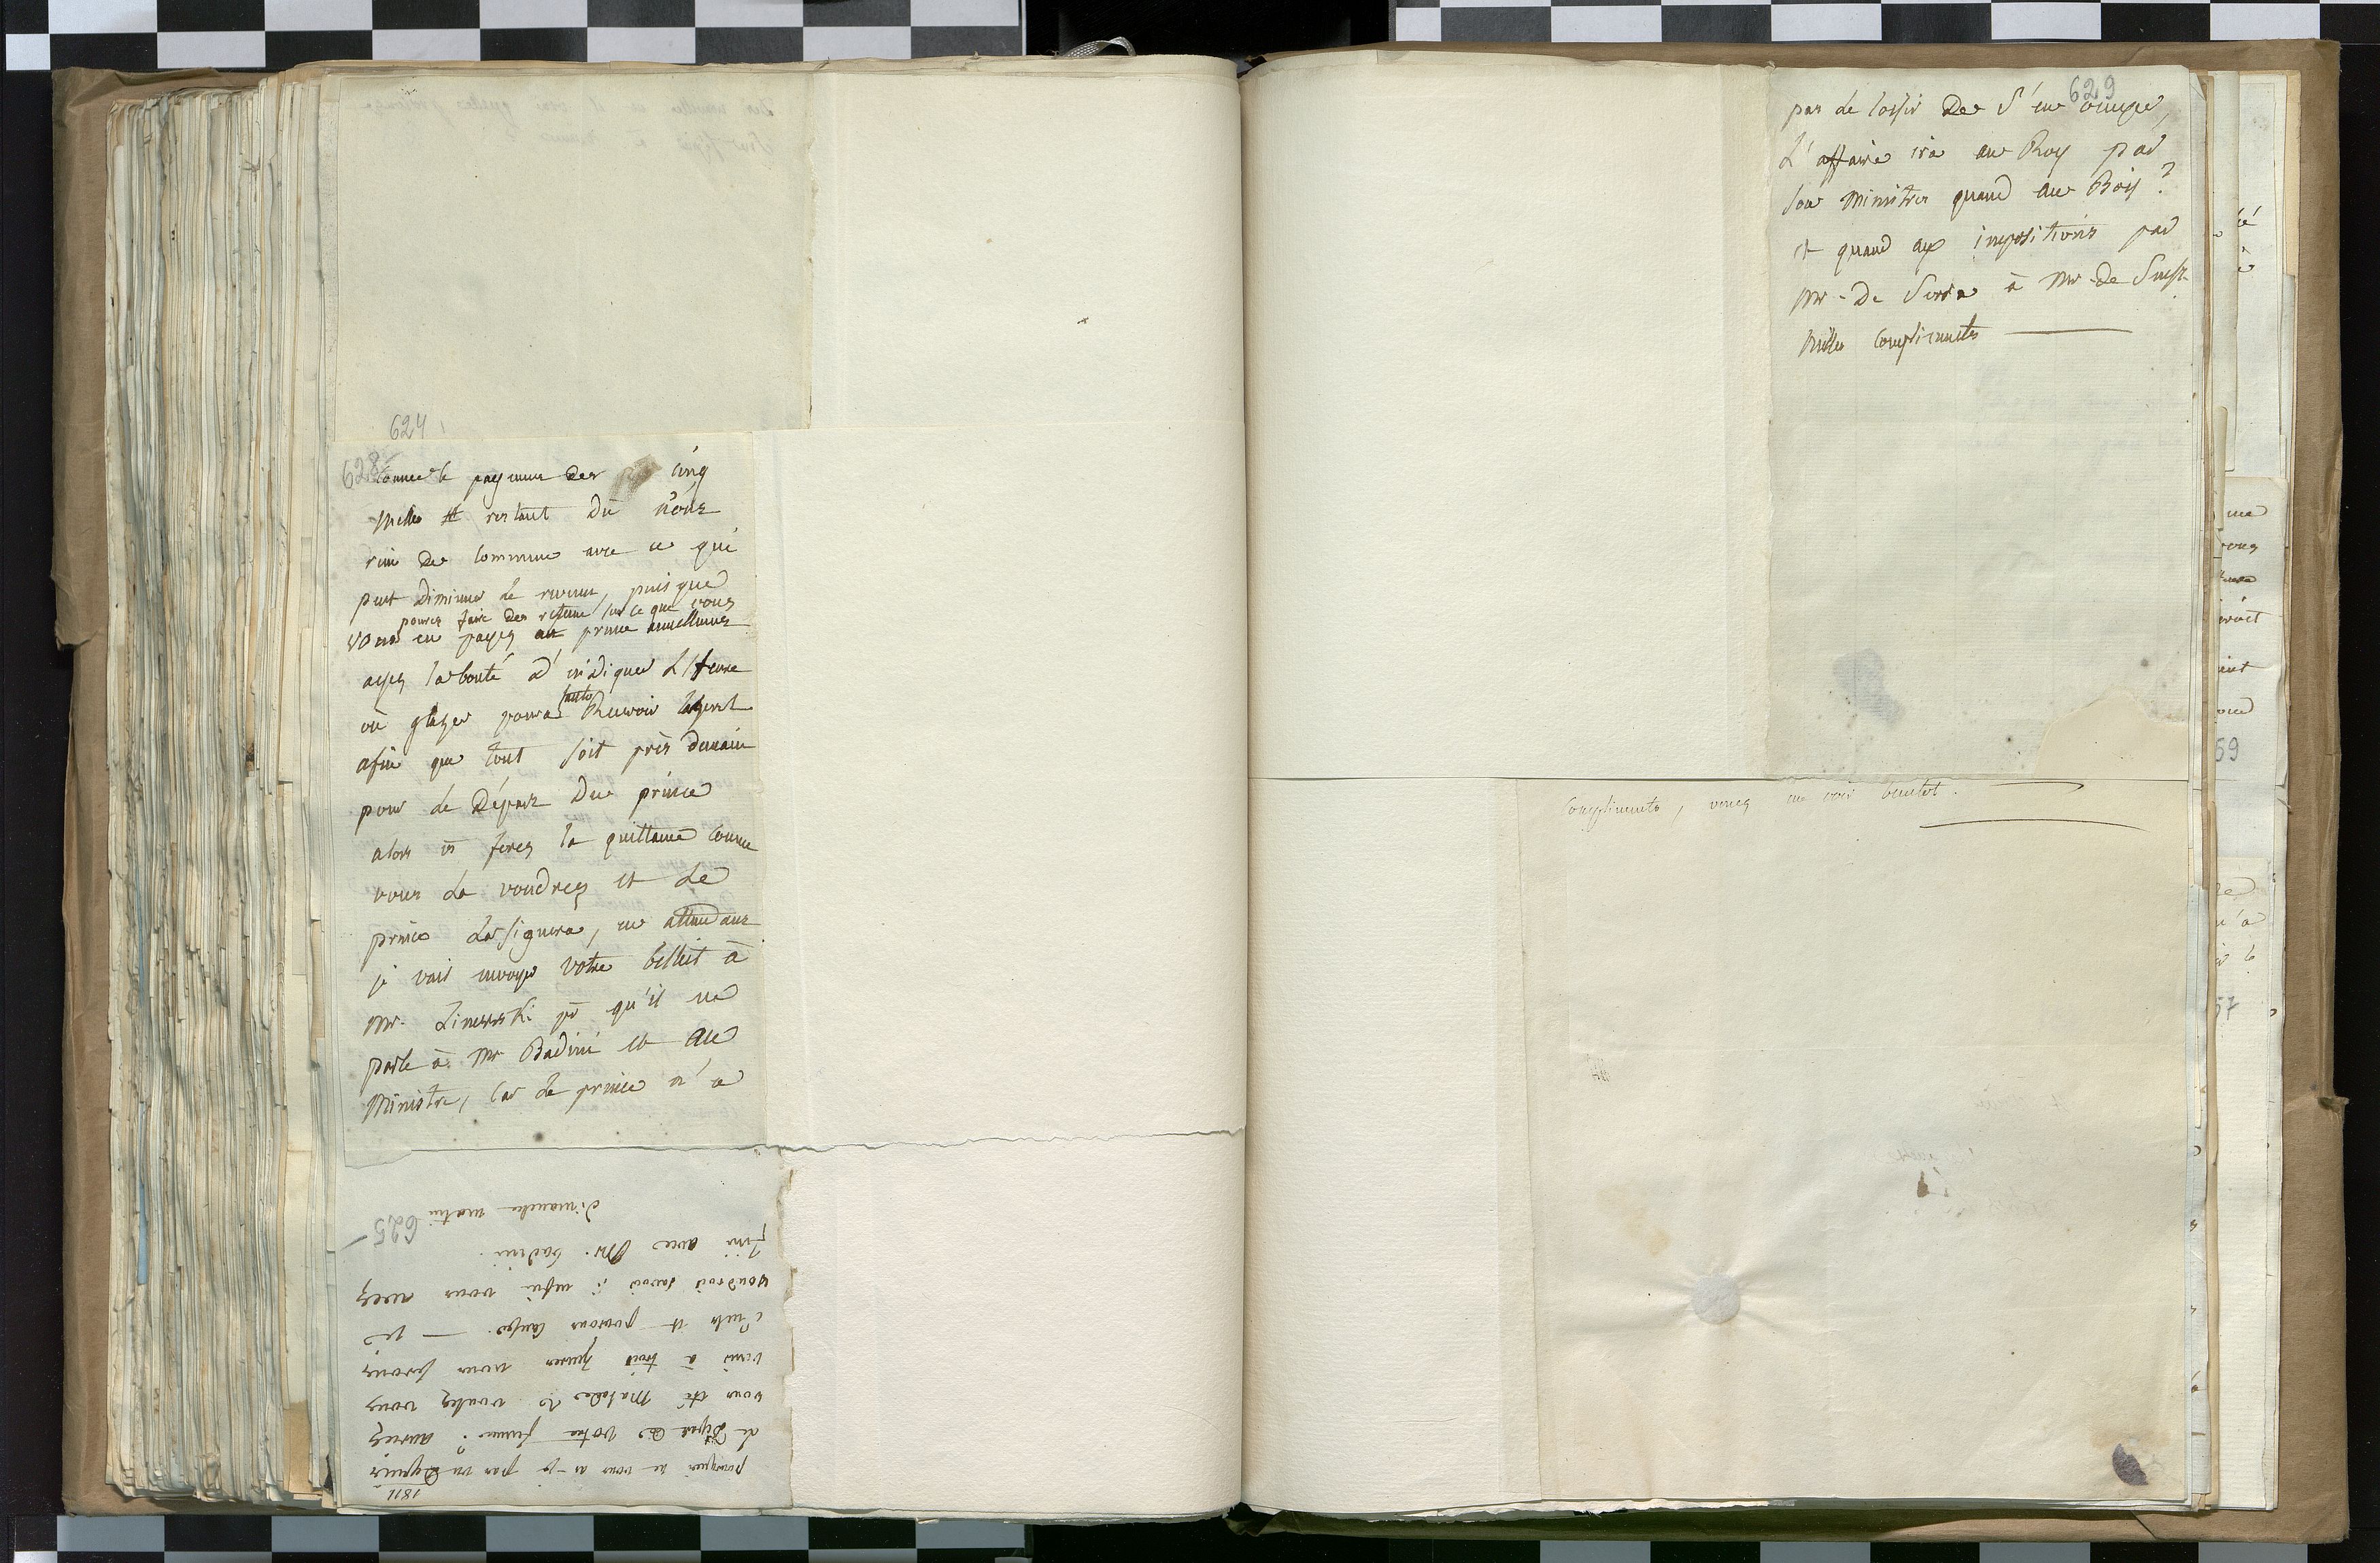 624
628
comme le payement des cinq
mille # restant dû n'ont
rien de commun avec ce qui
peut diminuer le revenu, puisque
pouvez faire des retenues sur ce que vous
vous en payez au prince annuellement
ayez la bonté d'indiquer l'heure
où glazer poura Recevoir l'argent
afin que tout soit près demain
pour le Départ Du prince
alors v̄s ferez la quittance comme
vous la voudrez et le
prince la signera, en attendant
je vais envoyer votre billiet à
Mr. Linewski pr qu'il en
parle à Mr Badini et au
Ministre, car le prince n'a
629
pas le loisir de s'en occuper,
L'affaire ira au Roy par
son Ministre quand au Bois?
et quand aux impositions par
Mr. De Serra à Mr. De Senft
Mille Compliments
Compliments, venez me voir bientot.
1811
pourquoi ne vous ai-je pas vu Depuis
le Départ de votre femme? auriez
vous été Malade? voulez vous
venir à trois heures nous serons
seuls et pourons causer. — je
voudrois savoir si enfin vous avez
fini avec Mr. badini.
dimanche matin
625